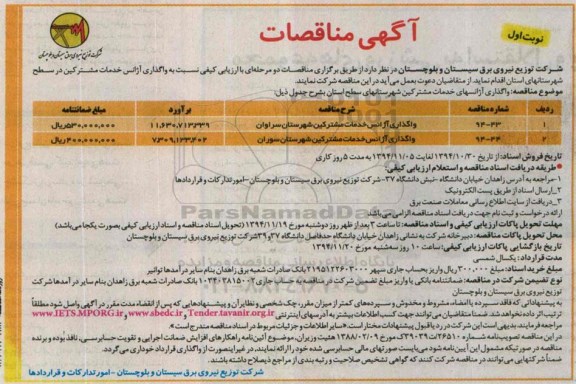 آگهی مناقصات
نوبت اول
شرکت توزیع نیروی برق سیستان و بلوچستان
شرکت توزیع نیروی برق سیستان و بلوچستان در نظر دارد از طریق برگزاری مناقصات دو مرحله‌ای با ارزیابی کیفی نسبت به واگذاری آژانس خدمات مشترکین در سطح
شهرستانهای استان اقدام نماید. از متقاضیان دعوت بعمل می‌آید در این مناقصه شرکت نمایند.
موضوع مناقصه: واگذاری آژانسهای خدمات مشترکین شهرستانهای سطح استان بشرح جدول ذیل:
ردیف شماره مناقصه شرح مناقصه برآورد مبلغ ضمانتنامه
۱ ۹۴-۴۳ واگذاری آژانس خدمات مشترکین شهرستان سراوان ۱۱,۶۳۰,۷۱۳,۳۳۹ ۵۳۰,۰۰۰,۰۰۰ ریال
۲ ۹۴-۴۴ واگذاری آژانس خدمات مشترکین شهرستان سوران ۷,۳۰۹,۱۲۳,۴۰۲ ۴۰۰,۰۰۰,۰۰۰ ریال
تاریخ فروش اسناد: از تاریخ ۱۳۹۴/۱۰/۳۰ لغایت ۱۳۹۴/۱۱/۰۵ به مدت ۵ روز کاری
طریقه دریافت اسناد مناقصه و استعلام ارزیابی کیفی:
۱-مراجعه به آدرس زاهدان خیابان دانشگاه -نبش دانشگاه ۳۷-شرکت توزیع نیروی برق سیستان وبلوچستان -امور تدارکات و قراردادها
۲_ارسال اسناد از طریق پست الکترونیک
۳_دریافت از سایت اطلاع رسانی معاملات صنعت برق
ارائه درخواست و ثبت نام جهت دریافت اسناد مناقصه الزامی می‌باشد
مهلت تحویل پاکات ارزیابی کیفی و اسناد مناقصه: تا ساعت ۳ بعد از ظهر روز دوشنبه مورخ ۱۳۹۴/۱۱/۱۹ (تحویل اسناد مناقصه و اسناد ارزیابی کیفی بصورت یکجا می‌باشد)
محل تحویل پاکات مناقصه: دبیرخانه شرکت به نشانی زاهدان خیابان دانشگاه حدفاصل دانشگاه ۳۷ و ۳۹ شرکت توزیع نیروی برق سیستان و بلوچستان
تاریخ بازگشایی پاکات ارزیابی کیفی: ساعت ۱۰ روز سه شنبه مورخ ۱۳۹۴/۱۱/۲۰
مدت قرارداد: یکسال شمسی
مبلغ خرید اسناد: مبلغ ۳۰۰,۰۰۰ ریال واریز بحساب جاری سپهر بانک صادرات شعبه برق زاهدان بنام سایر درآمدها توانیر
نوع تضمین شرکت در مناقصه: ضمانتنامه بانکی یا واریز مبلغ تضمین شرکت در مناقصه به حساب جاری بانک صادرات شعبه برق زاهدان بنام سایر درآمدها شرکت
توزیع نیروی برق سیستان و بلوچستان
به پیشنهاداتی که فاقد سپرده یا امضاء، مشروط و مخدوش و سپرده‌های کمتر از میزان مقرر، چک شخصی و نظایر آن و پیشنهادهایی که پس از انقضاء مدت مقرر در آگهی واصل شود مطلقاً
ترتیب اثر داده نخواهد شد. ضمناً متقاضیان می‌توانند جهت کسب اطلاعات بیشتر به آدرسهای اینترنتی Tender.tavanir.org.ir و www.abedc.ir و www.IETS.MPORG.ir
مراجعه فرمایند. بدیهی است این شرکت در رد یا قبول پیشنهادات مختار است. «سایر اطلاعات و جزئیات مربوط در اسناد مناقصه مندرج است».
شرکت توزیع نیروی برق سیستان و بلوچستان -امور تدارکات و قراردادها